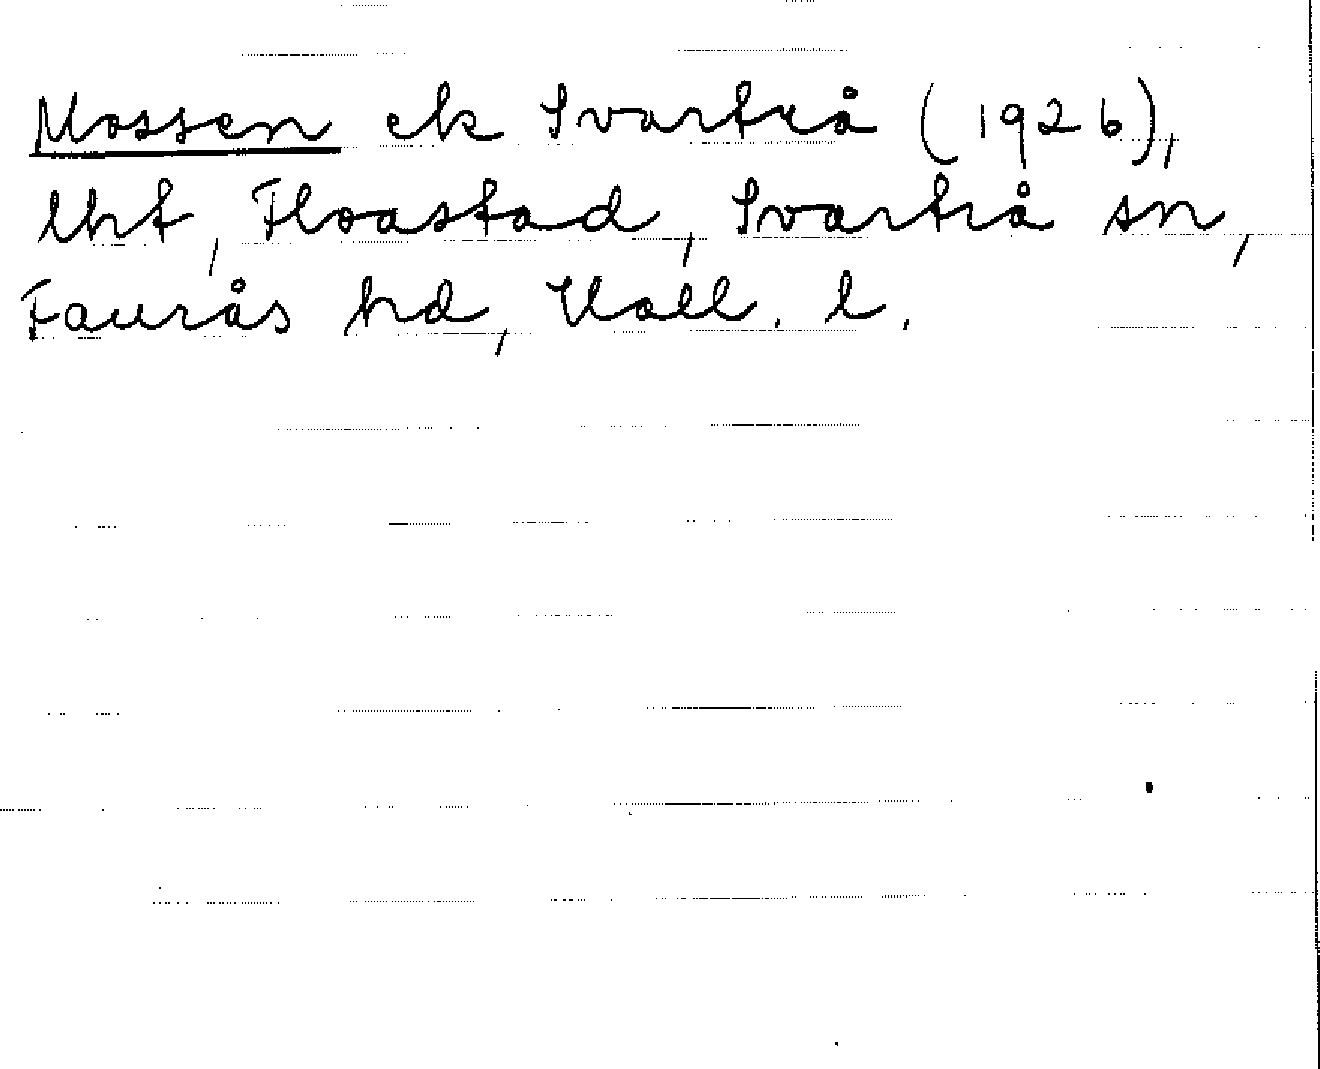 Mossen ek Svartrå (1926),
lht, Floastad, Svartrå sn,
Faurås hd, Hall. l.